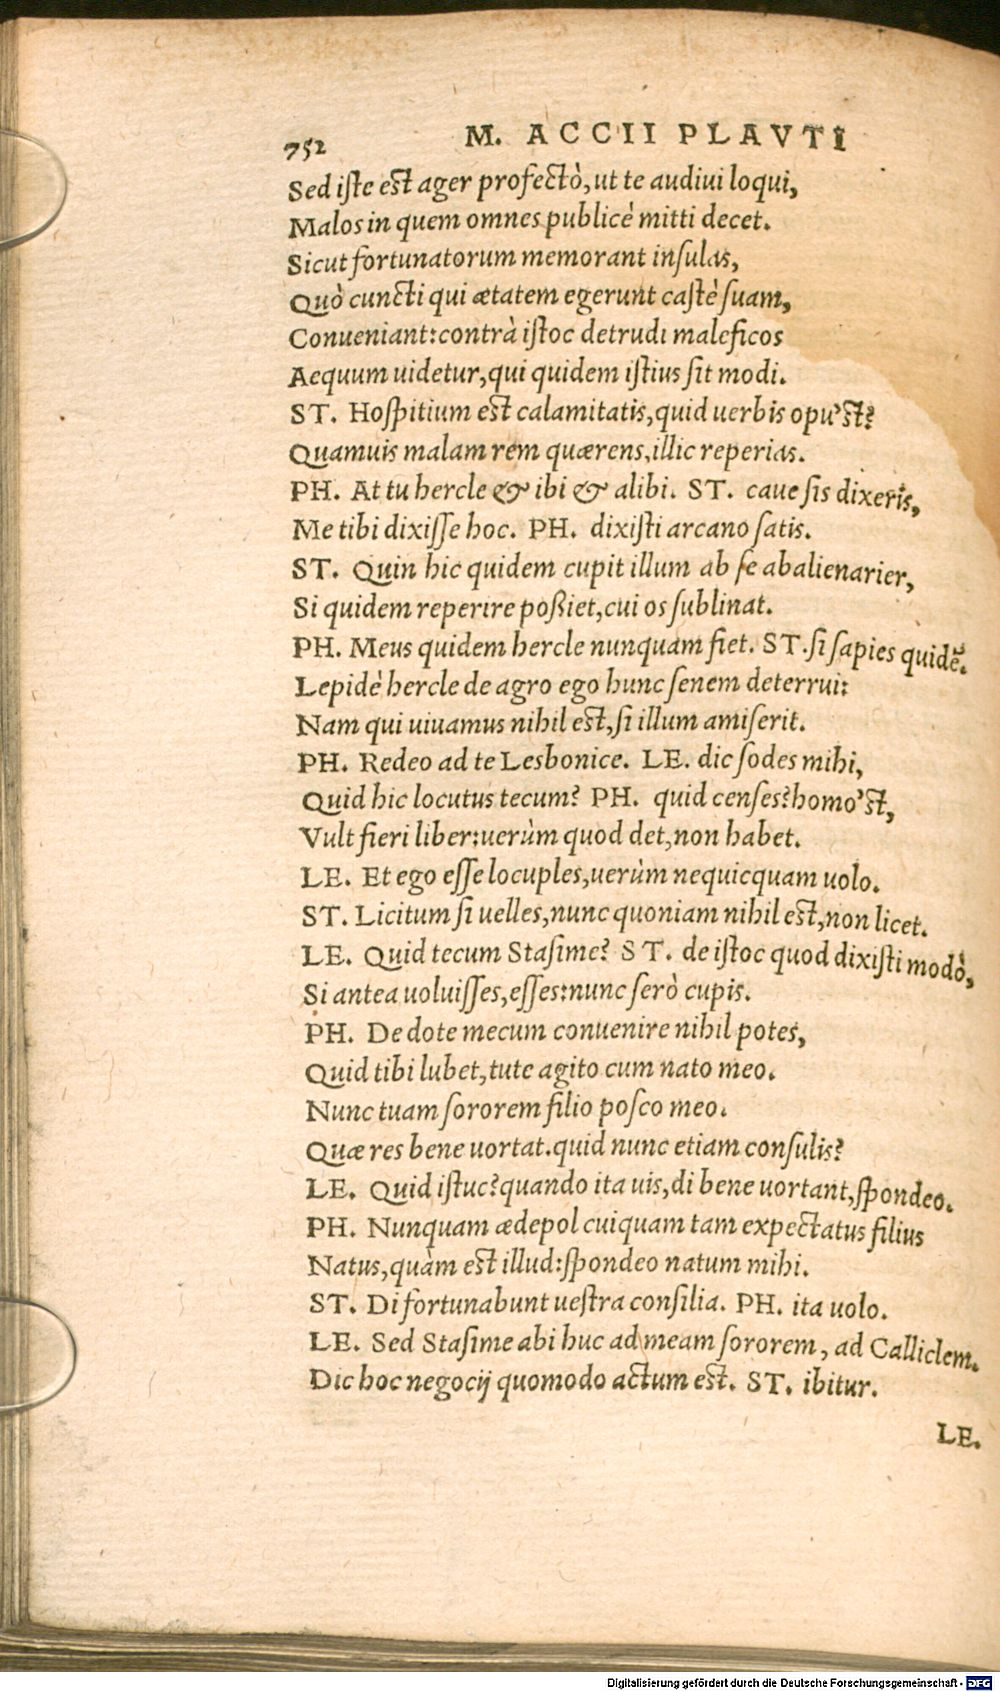 752 M. ACCII PLAVTI
Sed iſte eſt ager profectò, ut te audiui loqui,
Malos in quem omnes publicè mitti decet.
Sicut fortunatorum memorant inſulas,
Quò cuncti qui ætatem egerunt caſtè ſuam,
Conueniant: contrà iſtoc detrudi maleficos
Aequum uidetur, qui quidem iſtius ſit modi.
ST. Hoſpitium eſt calamitatis, quid uerbis opu'ſt?
Quamuis malam rem quærens, illic reperias.
PH. At tu hercle & ibi & alibi. ST. caue ſis dixeris,
Me tibi dixiſſe hoc. PH. dixiſti arcano ſatis.
ST. Quin hic quidem cupit illum ab ſe abalienarier,
Si quidem reperire poßiet, cui os ſublinat.
PH. Meus quidem hercle nunquam fiet. ST. ſi ſapies quidē.
Lepidè hercle de agro ego hunc ſenem deterrui:
Nam qui uiuamus nihil eſt, ſi illum amiſerit.
PH. Redeo ad te Lesbonice. LE. dic ſodes mihi,
Quid hic locutus tecum? PH. quid cenſes? homo'ſt,
Vult fieri liber: uerùm quod det, non habet.
LE. Et ego eſſe locuples, uerùm nequicquam uolo.
ST. Licitum ſi uelles, nunc quoniam nihil eſt, non licet.
LE. Quid tecum Staſime? ST. de iſtoc quod dixiſti modò,
Si antea uoluiſſes, eſſes: nunc ſerò cupis.
PH. De dote mecum conuenire nihil potes,
Quid tibi lubet, tute agito cum nato meo.
Nunc tuam ſororem filio poſco meo.
Quæ res bene uortat. quid nunc etiam conſulis?
LE. Quid iſtuc? quando ita uis, di bene uortant, ſpondeo.
PH. Nunquam ædepol cuiquam tam expectatus filius
Natus, quàm eſt illud: ſpondeo natum mihi.
ST. Di fortunabunt ueſtra conſilia. PH. ita uolo.
LE. Sed Staſime abi huc ad meam ſororem, ad Calliclem.
Dic hoc negocij quomodo actum eſt. ST. ibitur.
LE.
Digitalisierung gefördert durch die Deutsche Forschungsgemeinschaft - DFG